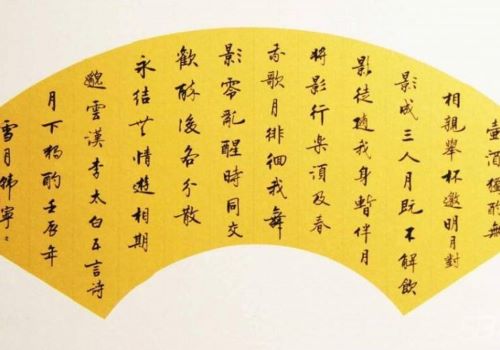 壺酒獨酌無
相親舉杯邀明月對
影成三人月既不解飲
影徒随我身暫伴月
将影行樂須及春
我歌月徘徊我舞
影零亂醒時同交
歡醉後各分散
永结無情遊相期
邈雲漢李太白五言诗
月下独酌壬辰年
雪月韩寧